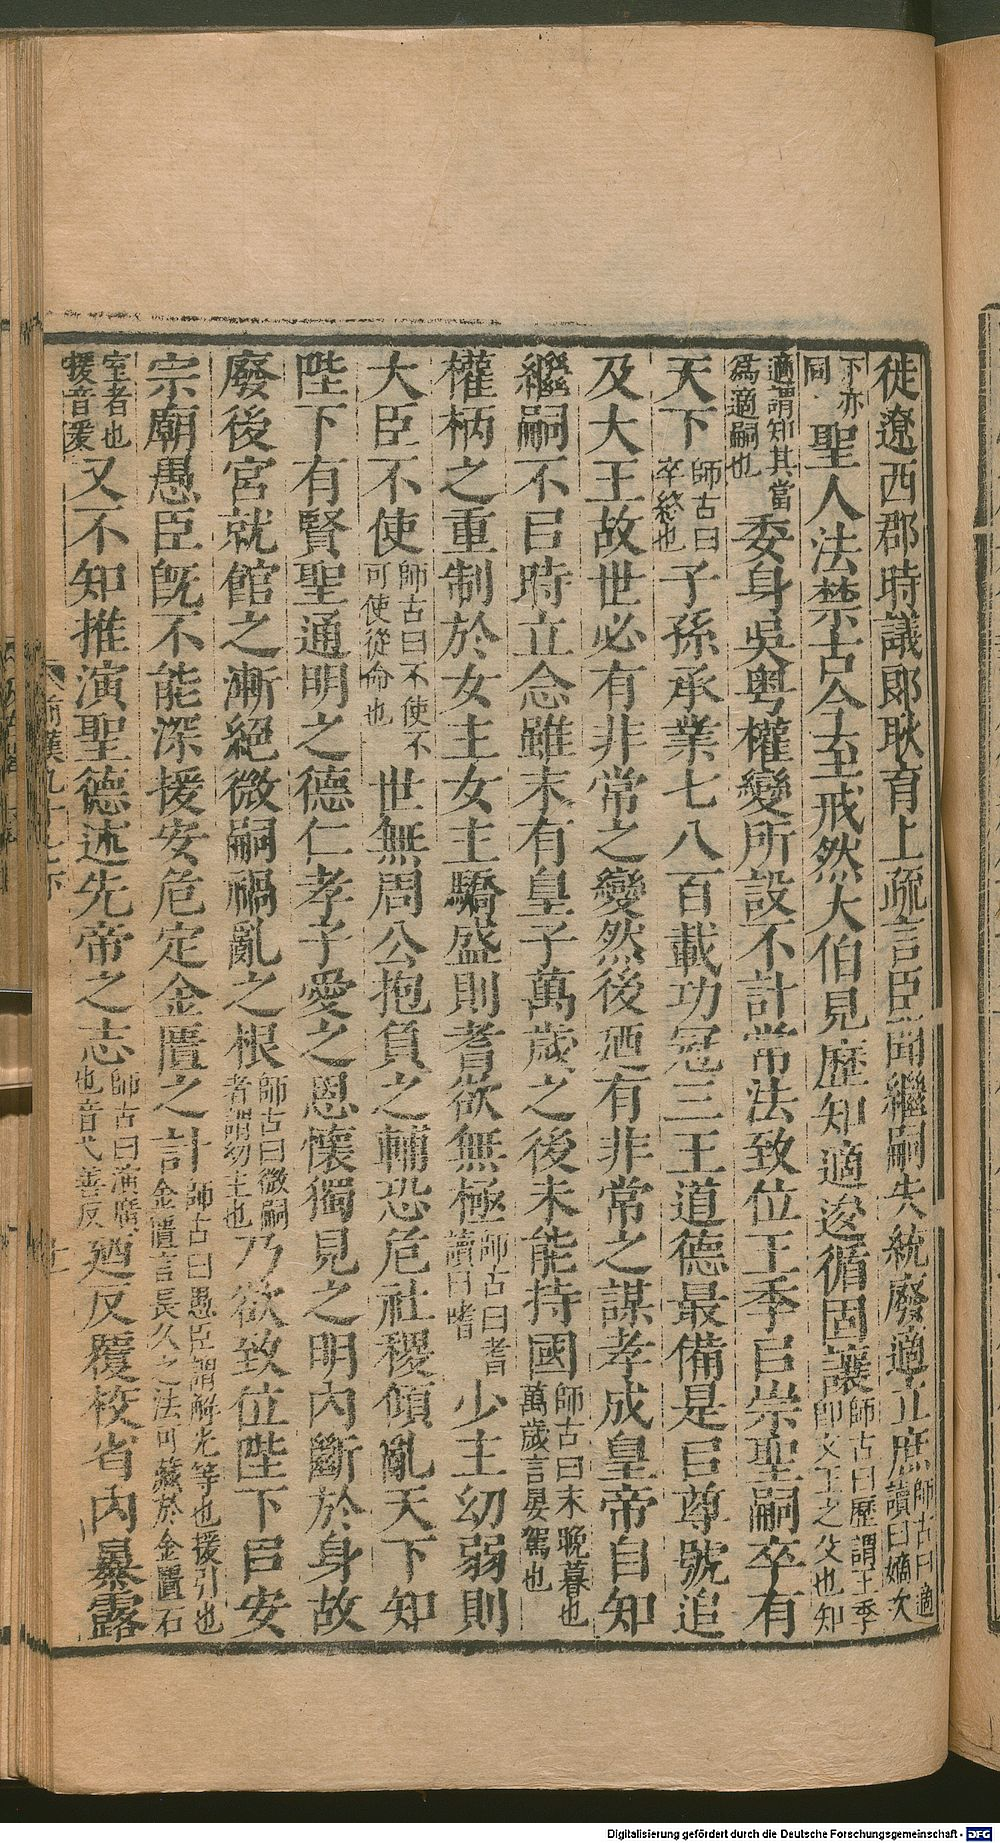 徙遼西郡時議郎耿育上疏言臣聞繼嗣失統廢適立庶師古曰適讀曰嫡次
下亦同聖人法禁古今至戒然大伯見歷知適逡循固讓師古曰歷謂王季即文王之父也知
適謂知其當爲適嗣也委身吳粵權變所設不計常法致位王季㠯崇聖嗣卒有
天下師古曰卒終也子孫承業七八百載功冠三王道德最備是㠯尊號追
及大王故世必有非常之變然後迺有非常之謀孝成皇帝自知
繼嗣不㠯時立念雖末有皇子萬歲之後未能持國師古曰末晚暮也萬歲言晏駕也
權柄之重制於女主女主驕盛則耆欲無極師古曰耆讀曰嗜少主幼弱則
大臣不使師古曰不使不可使從命也世無周公抱負之輔恐危社稷傾亂天下知
陛下有賢聖通明之德仁孝子愛之恩懷獨見之明內斷於身故
廢後宮就館之漸絕微嗣禍亂之根師古曰微嗣者謂幼主也乃欲致位陛下㠯安
宗廟愚臣旣不能深援安危定金匱之計師古曰愚臣謂解光等也援引也金匱言長久之法可藏於金匱石
室者也援音爰又不知推演聖德述先帝之志師古曰演廣也音弋善反迺反覆校省內暴露
前漢九十七下
Digitalisierung gefördert durch die Deutsche Forschungsgemeinschaft - DFG